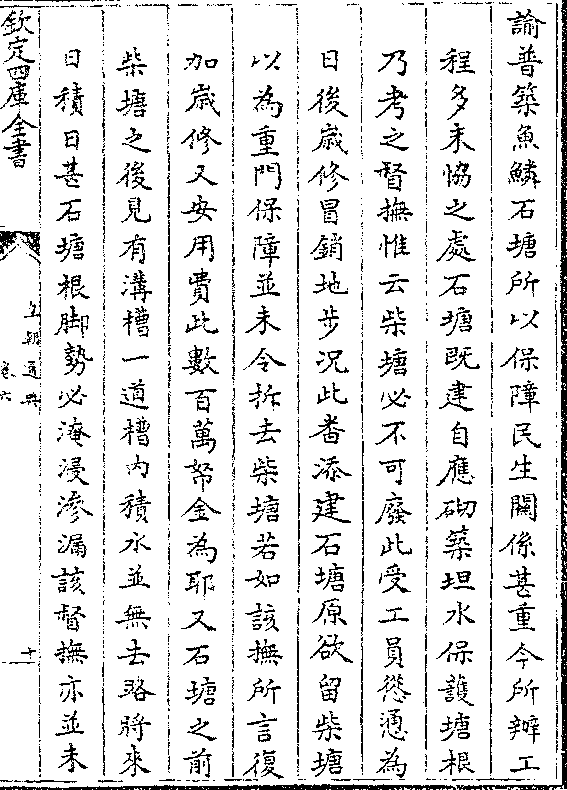 諭普築魚鱗石塘所以保障民生關係甚重今所辦工
程多未協之處石塘既建自應砌築坦水保護塘根
乃考之督撫惟云柴塘必不可廢此受工員慫慂為
日後歲修冒銷地步況此畨添建石塘原欲留柴塘
以為重門保障並未令拆去柴塘若如該撫所言復
加歲修又安用費此數百萬帑金為耶又石塘之前
柴塘之後見有溝槽一道槽内積水並無去路將來
日積日甚石塘根脚勢必淹浸滲漏該督撫亦並未
欽定四庫全書
皇朝通典
卷六
十一